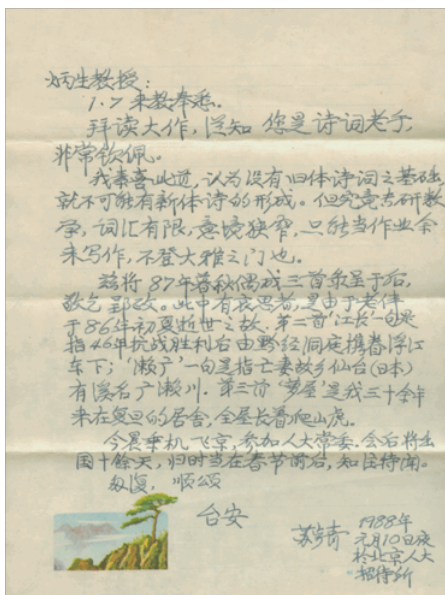 炳生教授：
1.7来教奉悉。
拜读大作，谂知您是诗词老手，
非常钦佩。
我素喜此道，认为没有旧体诗词之基础，
就不可能有新体诗的形成。但究竟专研数
学，词汇有限，意境狭窄，只能当作业余
来写作，不登大雅之门也。
兹将87年暮秋偶成三首录呈于后，
敬乞郢政。此中有哀思者，是由于老伴
于86年初夏逝世之故。第二首‘江长’一句是
指46年抗战胜利后由黔经洞庭携眷浮江
东下；‘濑广’一句是指亡妻故乡仙台(日本)
有溪名广濑川。第三首‘萝屋’是我三十余年
来在复旦的居舍，全屋长着爬山虎。
今晨乘机飞京，参加人大常委，会后将出
国十馀天，归时当在春节前后，知注特闻。
敬复，顺颂
台安
苏步青
1988年
元月10日夜
於北京人大
招待所